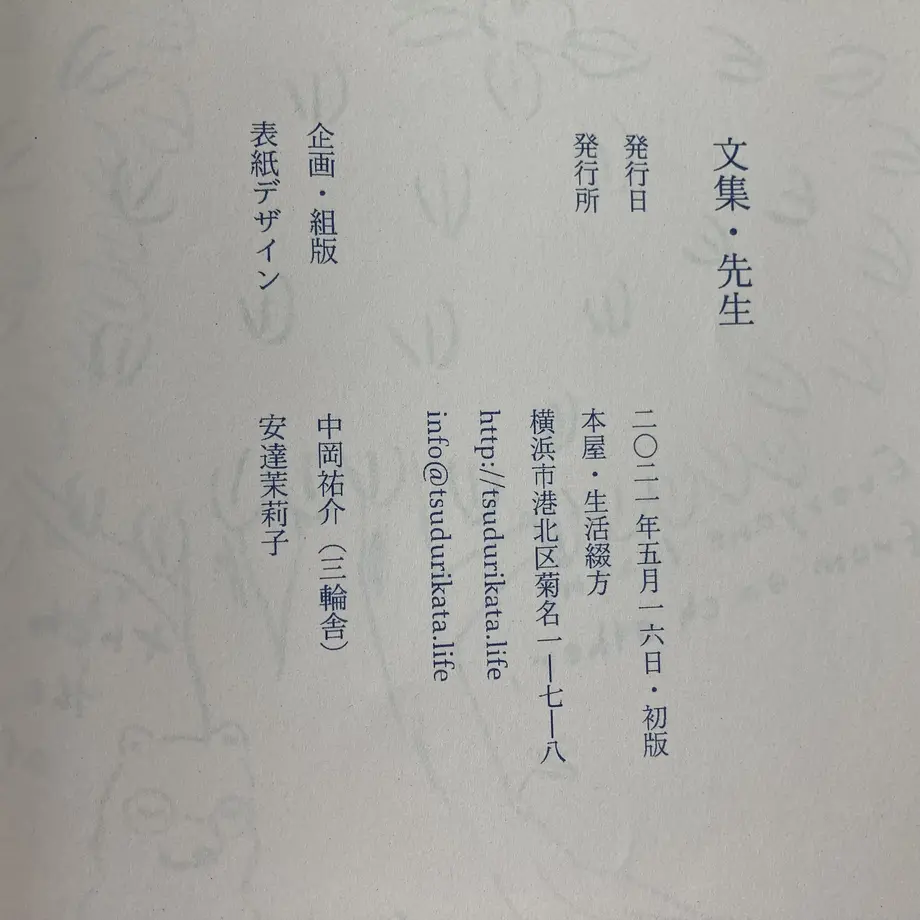 文集・先生
発行日　二〇二一年五月一六日・初版
発行所　本屋・生活綴方
横浜市港北区菊名一―七―八
http://tsudurikata.life
info@tsudurikata.life
企画・組版　中岡祐介（三輪舎）
表紙デザイン　安達茉莉子